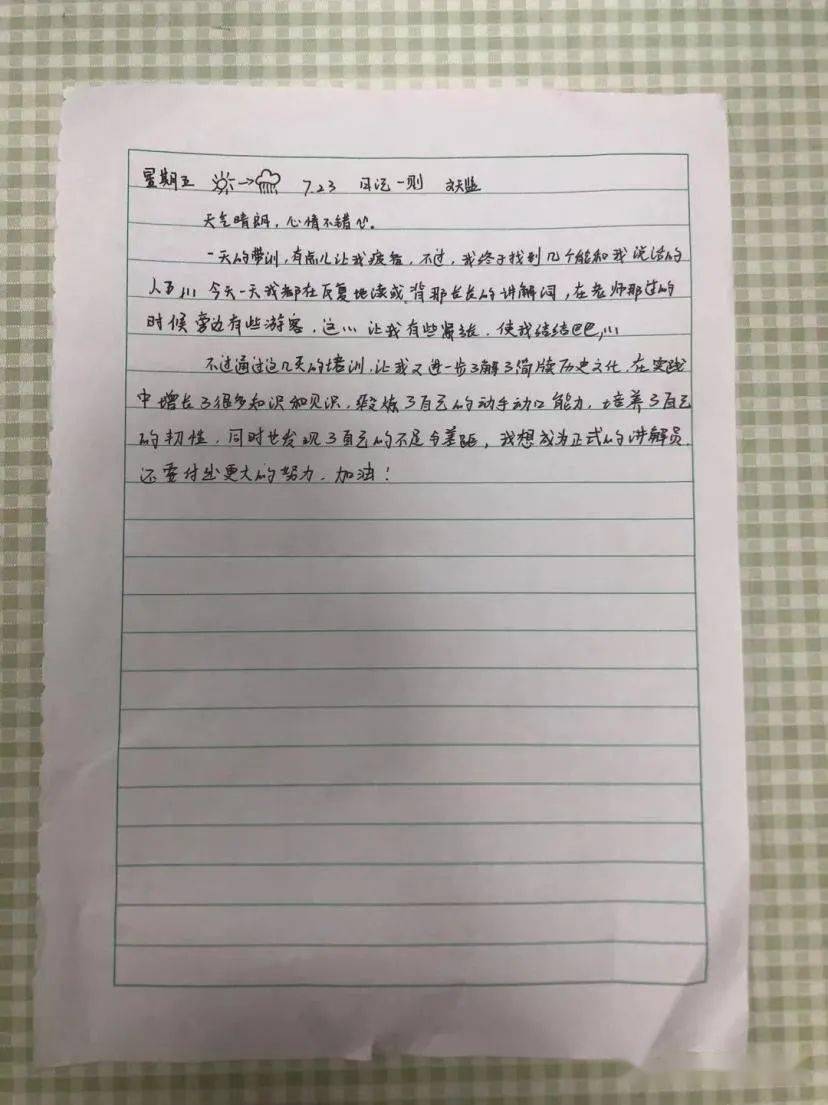 星期五 7.23 日记一则
天气晴朗，心情不错
一天的带训，有点儿让我疲惫，不过，我终于找到几个能和我说话的
人了,,, 今天一天我都在反复地读或背那长长的讲解词，在老师那过的
时候旁边有些游客，这,,, 让我有些紧张，使我结结巴巴,,,
不过通过这几天的培训，让我又进一步了解了简牍历史文化，在实践
中增长了很多知识和见识，锻炼了自己的动手动口能力，培养了自己
的韧性，同时也发现了自己的不足与差距，我想成为正式的讲解员，
还要付出更大的努力，加油！